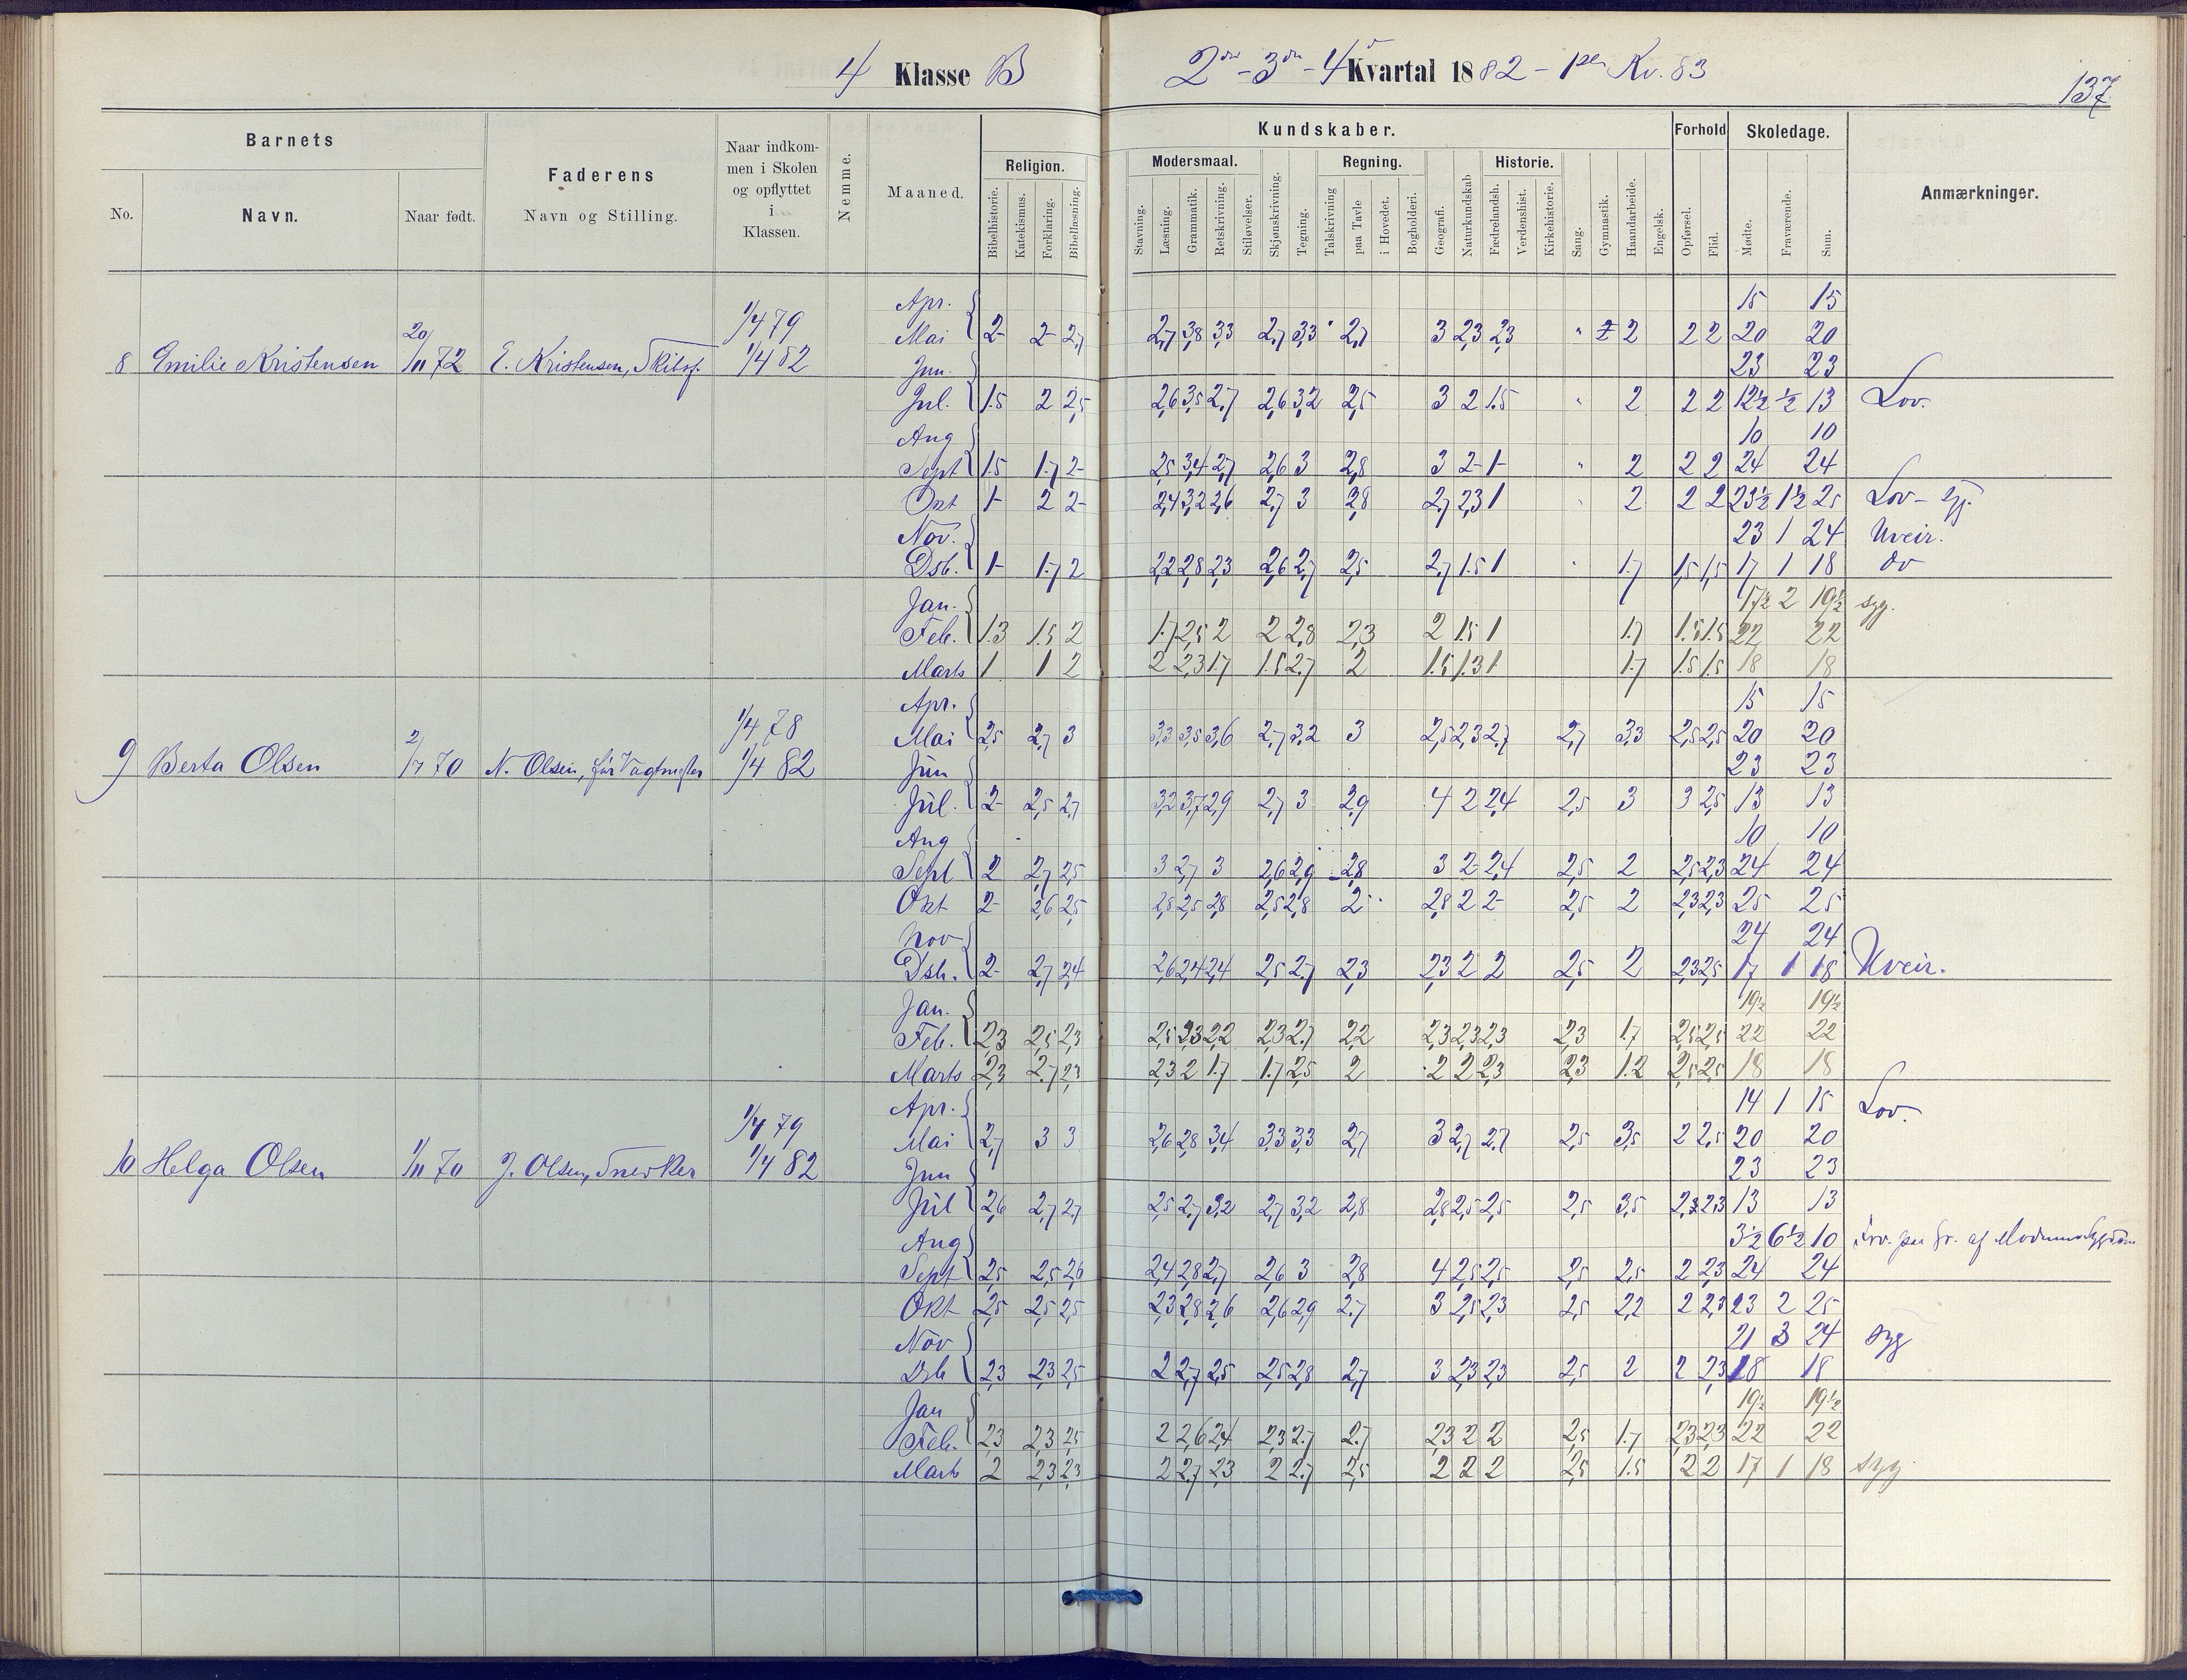 4 Klasse B 2den - 3die - 4de Kvartal 1882 - 1ste Kv. 83
137
Barnets
No. Navn. Naar født.
Faderens
Navn og Stilling.
Naar indkom-
men i Skolen
og opflyttet
i
Klassen.
Nemme.
Maaned.
Religion.
Bibelhistorie. Katekismus. Forklaring. Bibellæsning.
Kundskaber.
Modersmaal.
Stavning. Læsning. Grammatik. Retskrivning. Stiløvelser.
Skjønskrivning. Tegning.
Regning.
Talskrivning paa Tavle i Hovedet. Bogholderi.
Geografi. Naturkundskab
Historie.
Fædrelandsh. Verdenshist. Kirkehistorie.
Sang. Gymnastik. Haandarbeide. Engelsk.
Forhold
Opførsel. Flid.
Skoledage.
Mødte. Fraværende. Sum.
Anmærkninger.
Apr. 15 15
1/4 79 Mai 2- 2- 2,7 2,7 3,8 3,3 2,7 3,3 2,7 3 2,3 2,3 2 2 2 20 20
8 Emilie Kristensen 20/11 72 E. Kristensen, 1/4 82 Jun. 23 23
Jul. 1.5 2 2,5 2,6 3,5 2,7 2,6 3,2 2,5 3 2 1.5 2 2 2 12½ ½ 13 Lov.
Aug 10 10
Sept 1.5 1.7 2- 2,5 3,4 2,7 2,6 3 2,8 3 2- 1- 2 2 2 24 24
Okt 1- 2 2- 2,4 3,2 2,6 2,7 3 2,8 2,7 2,3 1 2 2 2 23½ 1½ 25 Lov - syg.
Nov. 23 1 24 Uveir.
Dsb. 1- 1.7 2 2,2 2,8 2,3 2,6 2,7 2,5 2,7 1.5 1 1.7 1,5 1,5 17 1 18 do
Jan. 17½ 2 19½ syg.
Feb. 1.3 1.5 2 1.7 2,5 2 2 2,8 2,3 2 1.5 1 1.7 1.5 1.5 22 22
Marts 1 1 2 2 2,3 1.7 1.5 2.7 2 1.5 1.3 1 1.7 1.5 1.5 18 18
Apr. 15 15
1/4 78 Mai 2,5 2,7 3 3,3 3,5 3,6 2,7 3,2 3 2,5 2,3 2,7 2,7 3,3 2,5 2,5 20 20
9 Berta Olsen 2/7 70 N. Olsen, før Vagtmester 1/4 82 Jun 23 23
Jul. 2- 2,5 2,7 3,2 3,7 2,9 2,7 3 2,9 4 2 2,4 2,5 3 3 2,5 13 13
Aug 10 10
Sept 2 2,7 2,5 3 2,7 3 2,6 2,9 2,8 3 2- 2,4 2,5 2 2,5 2,3 24 24
Okt 2- 2,6 2,5 2,8 2,5 2,8 2,5 2,8 2 2,8 2 2- 2,5 2 2,3 2,3 25 25
Nov 24 24
Dsb. 2- 2,7 2,4 2,6 2,4 2,4 2,5 2,7 2,3 2,3 2 2 2,5 2 2,3 2,5 17 1 18 Uveir.
Jan. 19½ 19½
Feb. 2,3 2,5 2,3 2,5 2,3 2,2 2,3 2,7 2,2 2,3 2,3 2,3 2,3 1.7 2,5 2,5 22 22
Marts 2,3 2,7 2,3 2,3 2 1.7 1.7 2,5 2 2 2 2,3 2,3 1.2 2,5 2,5 18 18
Apr. 14 1 15 Lov.
1/4 79 Mai 2,7 3 3 2,6 2,8 3,4 3,3 3,3 2,7 3 2,7 2.7 2,5 3,5 2 2,5 20 20
10 Helga Olsen 1/11 70 J. Olsen, Snedker 1/4 82 Jun 23 23
Jul 2,6 2,7 2,7 2,5 2,7 3,2 2,7 3,2 2,8 2,8 2,5 2,5 2,5 3,5 2,3 2,3 13 13
Aug 3½ 6½ 10 Frv. paa Gr. af Moderens Sygdom
Sept 2,5 2,5 2,6 2,4 2,8 2,7 2,6 3 2,8 4 2,5 2,5 2,5 2,5 2 2,3 24 24
Okt 2,5 2,5 2,5 2,3 2,8 2,6 2,6 2,9 2.7 3 2,5 2,3 2,5 2,2 2 2,3 23 2 25
Nov 21 3 24 syg
Dsb 2,3 2,3 2,5 2 2,7 2,5 2,5 2,8 2,7 3 2,3 2,3 2,5 2 2 2,3 18 18
Jan 19½ 19½
Feb. 2,3 2,3 2,5 2 2,6 2,4 2,3 2.7 2.7 2,3 2 2 2,5 1.7 2,3 2,3 22 22
Marts 2 2,3 2,3 2 2,7 2,3 2 2.7 2,5 2 2 2 2,5 1.5 2 2 17 1 18 syg